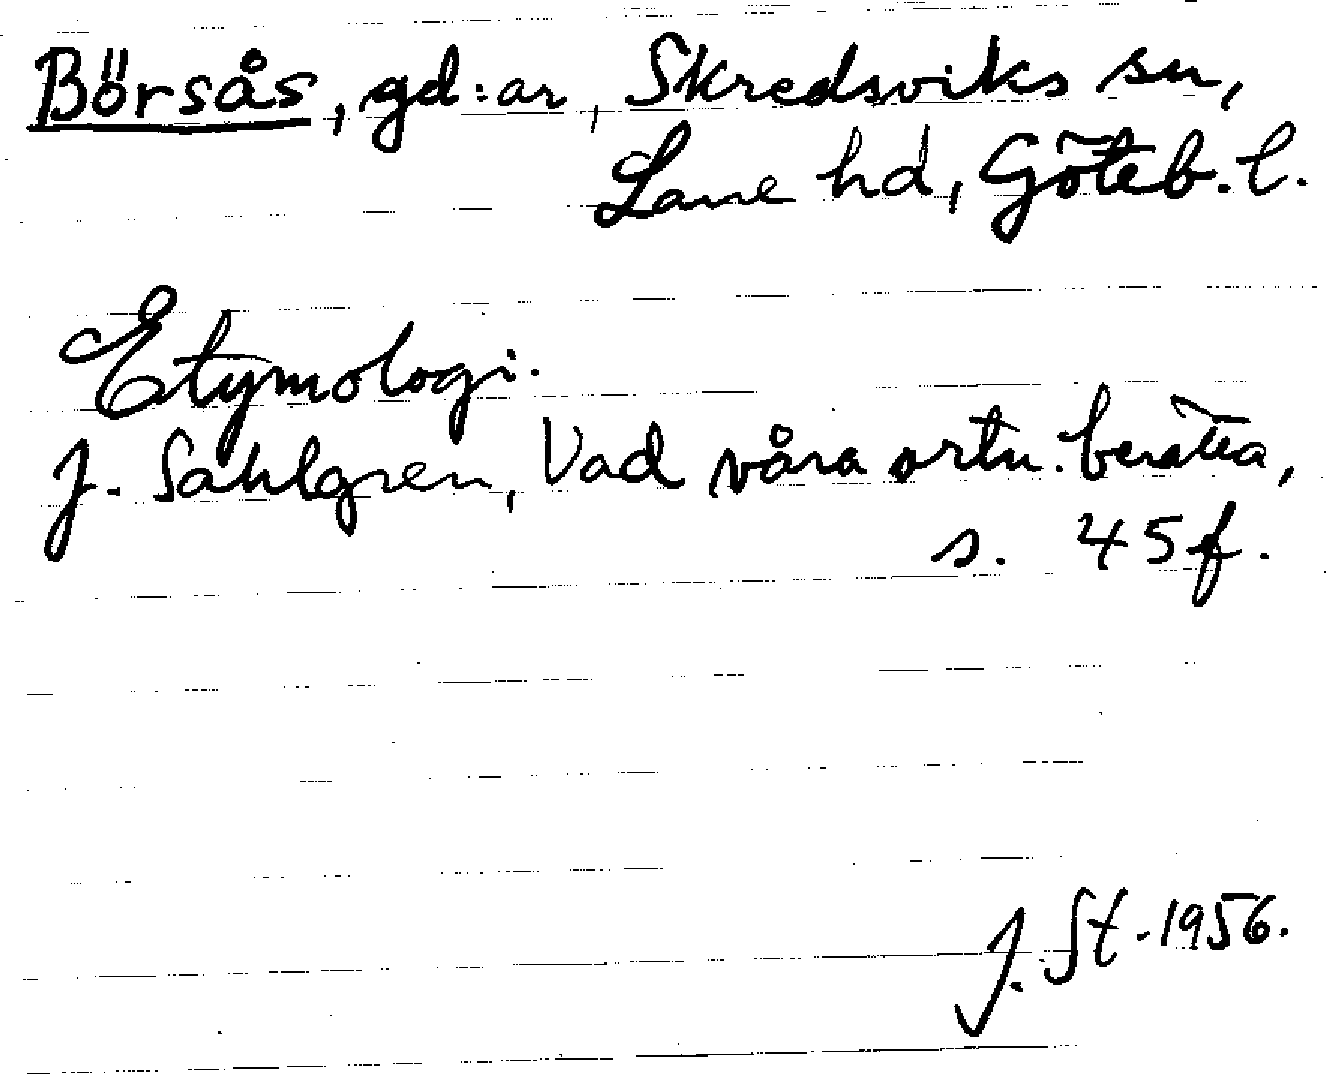 Börsås, gd:ar, Skredsviks sn,
Lane hd, Göteb. l.
Etymologi.
J. Sahlgren, Vad våra ortn. berätta,
s. 45 f.
J. St. 1956.